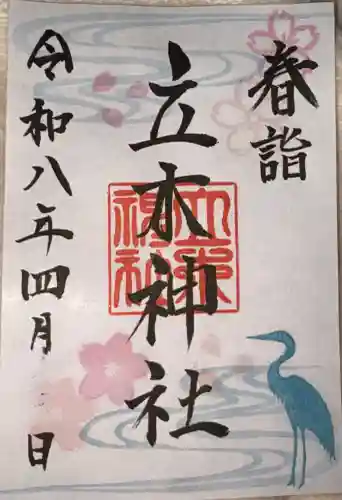 春詣
立木神社
立木
神社
令和八年四月 日